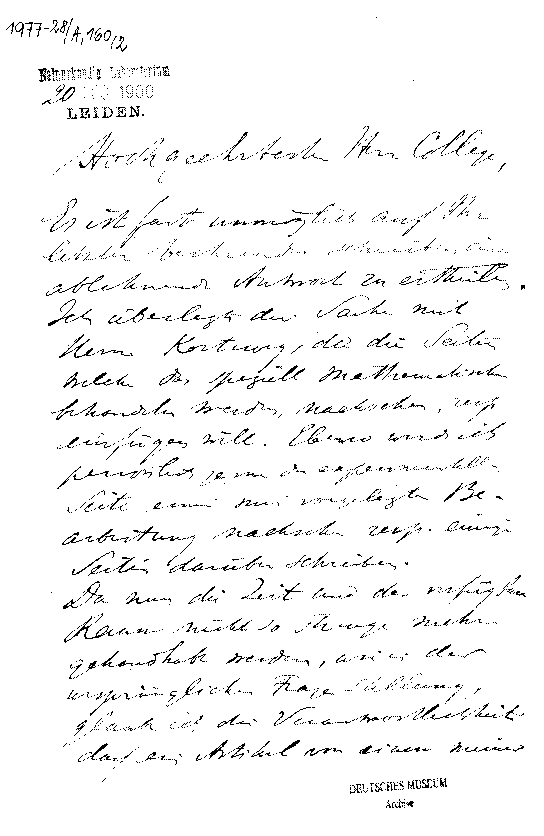 1977-28/A,160/2
Natuurkundig Laboratorium
20 1900
LEIDEN.
Hochgeehrtester Herr College,
Es ist fast unmöglich auf Ihr
letztes schreiben eine
ablehnende Antwort zu ertheilen.
Ich überlegte die Sache mit
Herrn Korteweg, der die Seiten
welche das speziell mathematische
behandeln werden, nachsehen, resp
einfügen will. Ebenso werde ich
persönlich gerne die experimentelle
Seite einer mir vorgelegten Be-
arbeitung nachsehen resp. einige
Seiten darüber schreiben.
Da nun die Zeit und der verfügbare
Raum nicht so strenge mehr
gehandhabt werden, wie in der
ursprünglichen Fragestellung,
glaube ich die Verantwortlichkeit
dass ein Artikel von einem meiner
DEUTSCHES MUSEUM
Archive